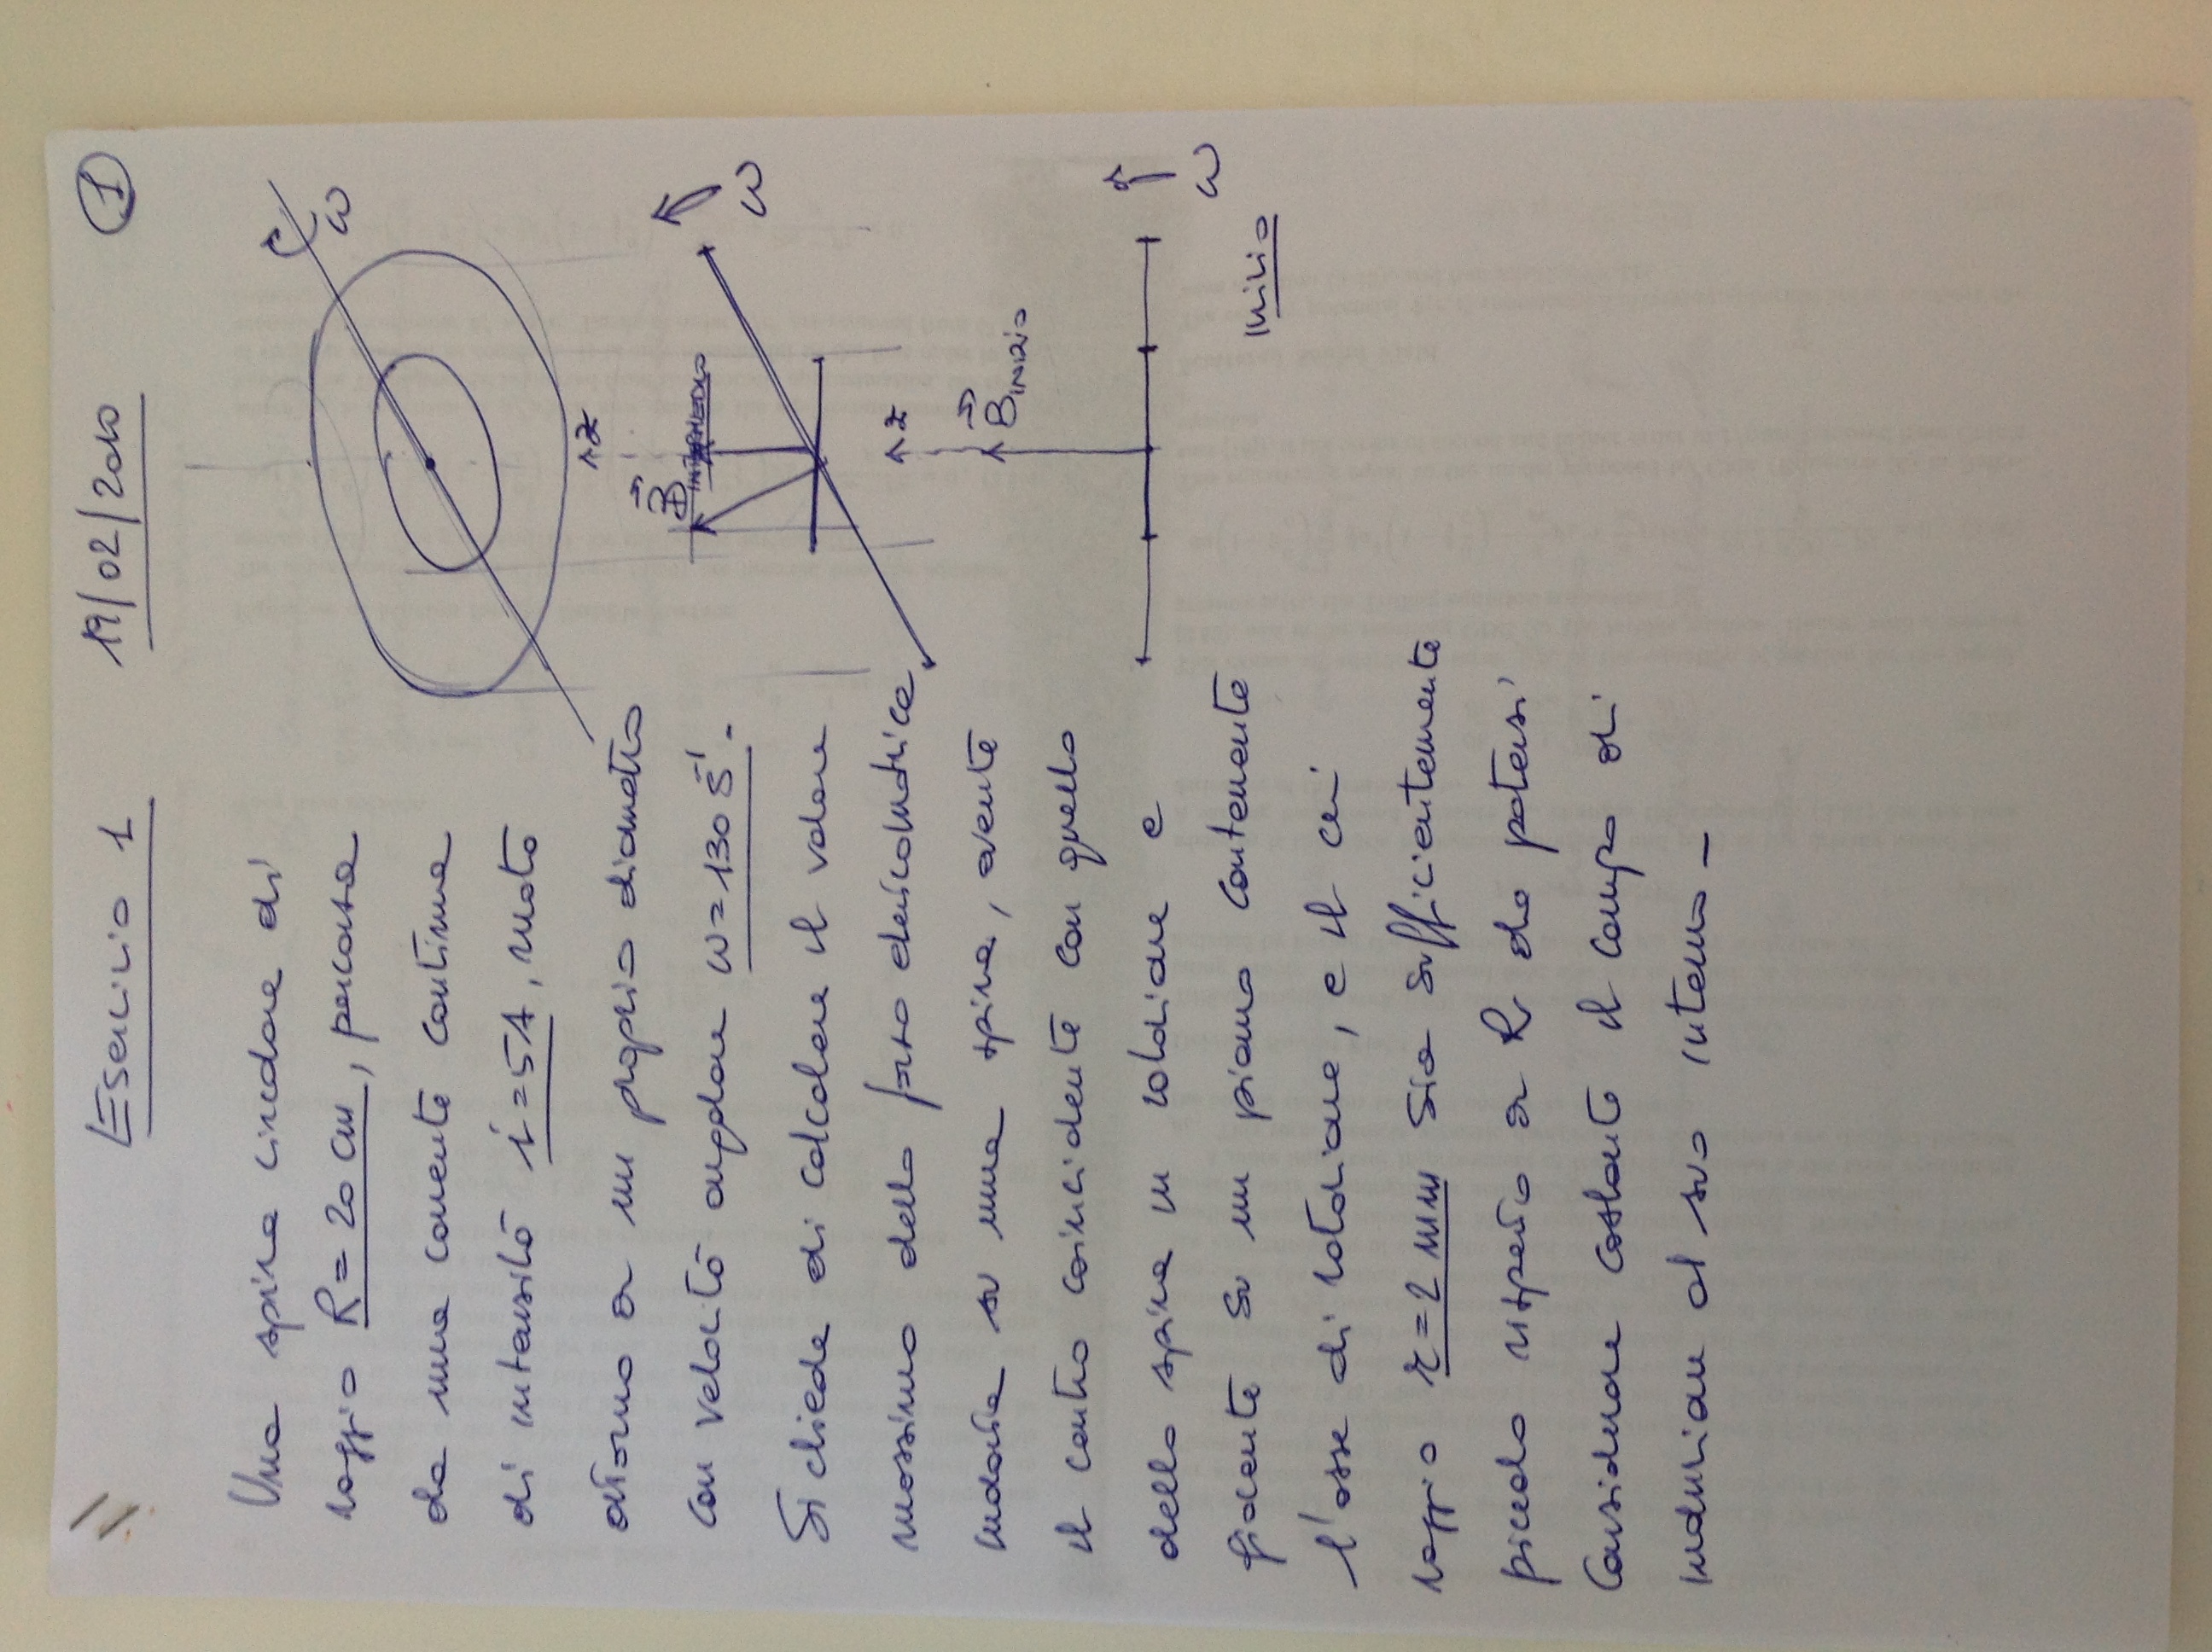 Esercizio 1 19/02/2010 1
Una spira circolare di
raggio R = 20 cm, percorsa
da una corrente continua
di intensità i = 5A, ruota
attorno a un proprio diametro
con velocità angolare ω = 130 s⁻¹.
Si chiede di calcolare il valore
massimo della forza elettromotrice
indotta su una spira, avente
il centro coincidente con quello
della spira in rotazione e
giacente su un piano contenente
l'asse di rotazione, e il cui
raggio r = 2 mm sia sufficientemente
piccolo rispetto a R da potersi
considerare costante il campo di
induzione al suo interno -
ω
z
B INTERMEDIO
ω
z
B INIZIO
ω
inizio